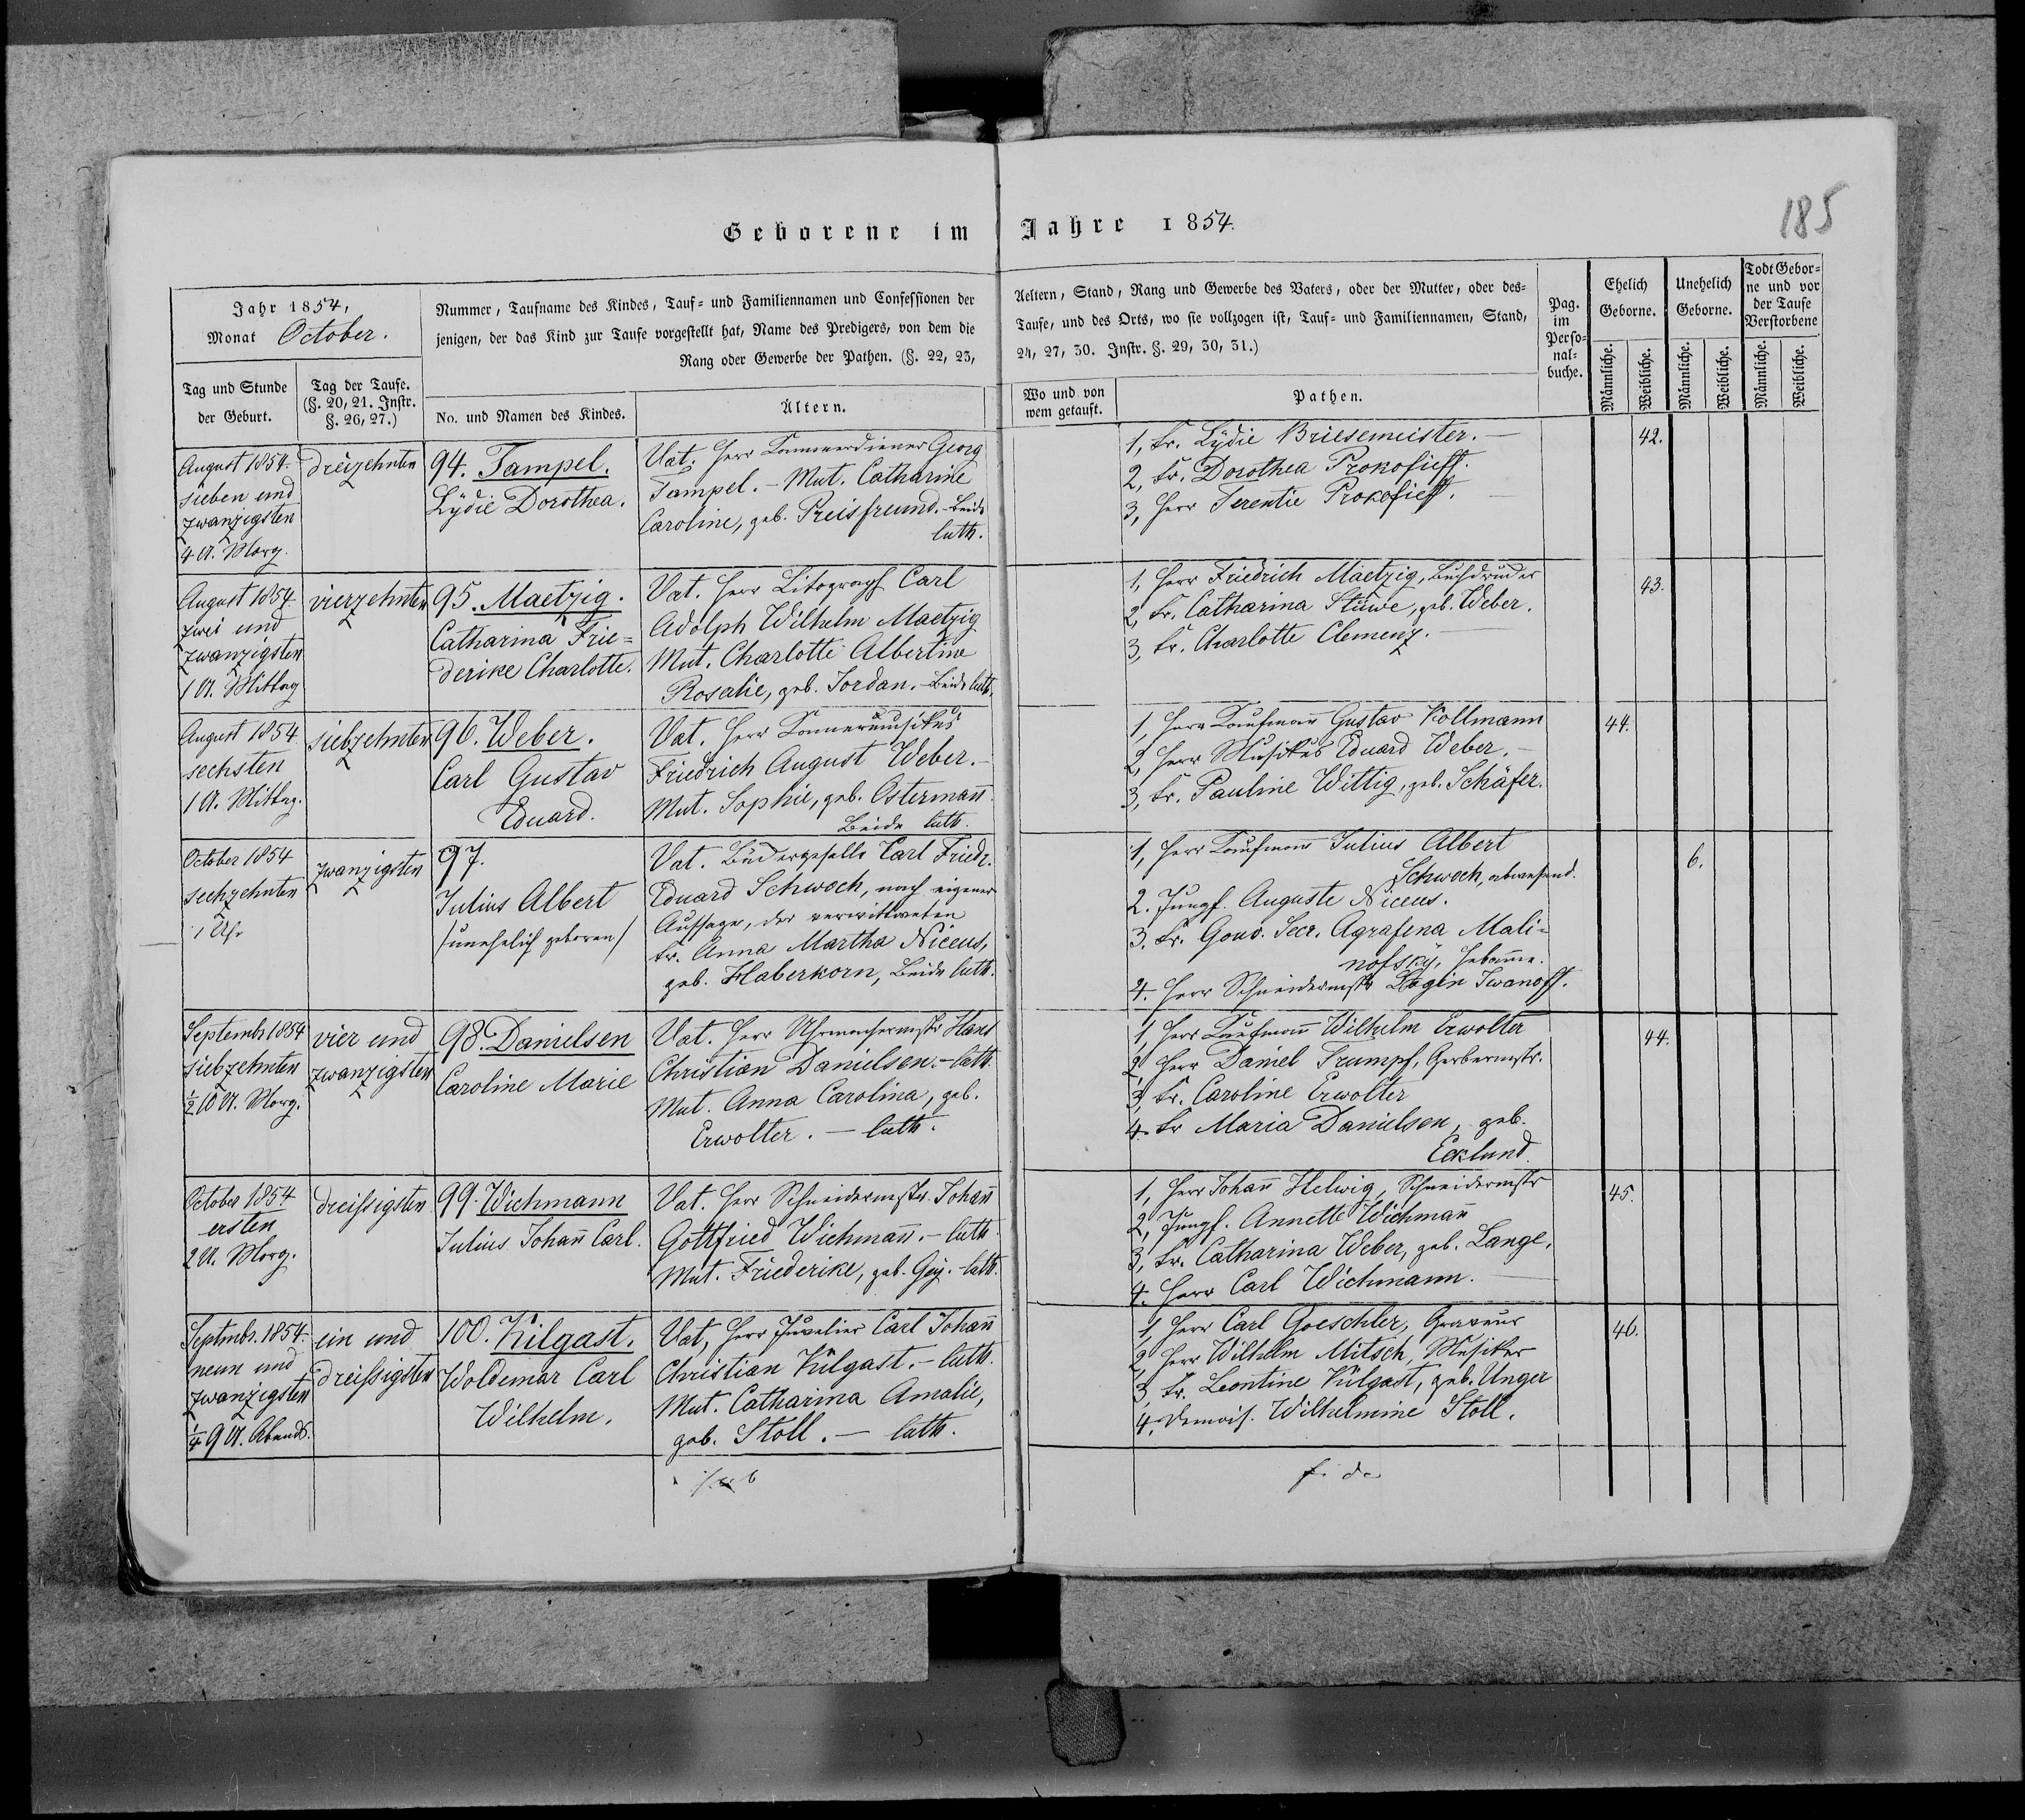 Geborene im Jahre 1854.
185
Jahr 1854,
Monat October.
Nummer, Taufname des Kindes, Tauf- und Familiennamen und Confessionen der
jenigen, der das Kind zur Taufe vorgestellt hat, Name des Predigers, von dem die
Rang oder Gewerbe der Pathen. (§. 22, 23,
Tag und Stunde
der Geburt.
Tag der Taufe.
(§. 20, 21. Instr.
§. 26, 27.)
No. und Namen des Kindes.
Ältern.
Aeltern, Stand, Rang und Gewerbe des Vaters, oder der Mutter, oder des-
Taufe, und des Orts, wo sie vollzogen ist, Tauf- und Familiennamen, Stand,
24, 27, 30. Instr. §. 29, 30, 31.)
Wo und von
wem getauft.
Pathen.
Pag.
im
Perso-
nal-
buche.
Ehelich
Geborne.
Unehelich
Geborne.
Todt Gebor-
ne und vor
der Taufe
Verstorbene
Männliche.
Weibliche.
Männliche.
Weibliche.
Männliche.
Weibliche.
August 1854.
sieben und
zwanzigsten
4 U. Morg.
dreizehnten
94. Tampel.
Lÿdie Dorothea.
Vat. Herr Kammerdiener Georg
Tampel. - Mut. Catharine
Caroline, geb. Preisfreund. - Beide
luth.
1, Fr. Lÿdie Briesemeister. -
2, Fr. Dorothea Prokofieff.
3, Herr Terentie Prokofieff. -
42.
August 1854
zwei und
zwanzigsten
1 U. Mittag
vierzehnten
95. Maetzig.
Catharina Frie=
derike Charlotte.
Vat. Herr Litograph Carl
Adolph Wilhelm Maetzig
Mut. Charlotte Albertine
Rosalie, geb. Jordan. - Beide luth.
1, Herr Friedrich Maetzig, Buchdrucker
2, Fr. Catharina Stüwe, geb. Weber.
3, Fr. Charlotte Clemenz. -
43.
August 1854
sechsten
1 U. Mittag.
siebzehnten
96. Weber.
Carl Gustav
Eduard.
Vat. Herr Kammermusikus
Friedrich August Weber. -
Mut. Sophie, geb. Ostermañ
Beide luth.
1, Herr Kaufmann Gustav Kollmann
2, Herr Musikus Eduard Weber. -
3, Fr. Pauline Wittig, geb. Schäfer.
44.
October 1854
sechzehnten
1 Uhr
zwanzigsten
97.
Julius Albert
/unehelich geboren/
Vat. Carl Friedr.
Eduard Schwoch, nach eigener
Aussage, der verwittweten
Fr. Anna Martha Niceus,
geb. Haberkorn, Beide luth.
1, Herr Kaufmann Julius Albert
Schwoch, abwesend.
2. Jungf. Auguste Niceus.
3. Fr. Gouv. Secr. Agrafena Mali=
nofskÿ, Hebamme.
4. Herr Schneidermstr Login Iwanoff.
6.
Septembr 1854
siebzehnten
½10 U. Morg.
vier und
zwanzigsten
98. Danielsen
Caroline Marie
Vat. Herr Uhrmachermstr Hans
Christian Danielsen. - luth.
Mut. Anna Carolina, geb.
Erwolter. - luth.
1, Herr Kaufmann Wilhelm Erwolter
2, Herr Daniel Trumpf, Gerbermstr.
3, Fr. Caroline Erwolter
4. Fr Maria Danielsen, geb.
Ecklund.
44.
October 1854.
ersten
2 U. Morg.
dreissigsten
99. Wichmann
Julius Johañ Carl.
Vat. Herr Schneidermstr. Johañ
Gottfried Wichmañ. - luth.
Mut. Friederike, geb. Geÿ. - luth.
1, Herr Johañ Helwig, Schneidermstr
2, Jungf. Annette Wichmañ
3, Fr. Catharina Weber, geb. Lange.
4. Herr Carl Wichmann. -
45.
Septmbr. 1854.
neun und
zwanzigsten
¼ 9 U. Abends.
ein und
dreissigsten
100. Külgast.
Woldemar Carl
Wilhelm.
Vat, Herr Juvelier Carl Johañ
Christian Külgast. - luth.
Mut. Catharina Amalie,
geb. Stoll. - luth.
1, Herr Carl Goeschler, Graveur
2, Herr Wilhelm Mitsch, Musiker
3, Fr. Leontine Külgast, geb. Unger
4, Demois. Wilhelmine Stoll.
46.